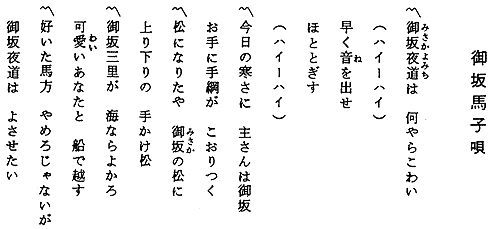 御坂馬子唄
〽御坂夜道は 何やらこわい
(ハイーハイ)
早く音を出せ
ほととぎす
(ハイーハイ)
〽今日の寒さに 主さんは御坂
お手に手綱が こおりつく
〽松になりたや 御坂の松に
上り下りの 手かけ松
〽御坂三里が 海ならよかろ
可愛いあなたと 船で越す
〽好いた馬方 やめろじゃないが
御坂夜道は よさせたい